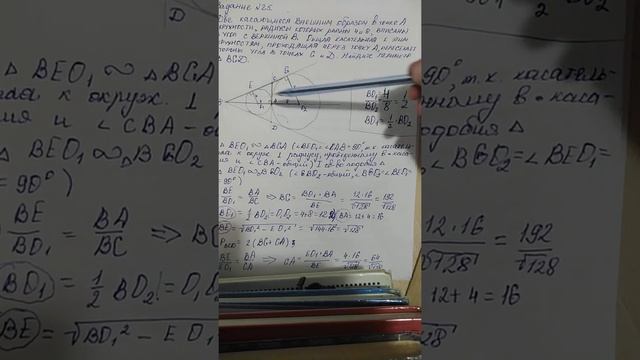 Задание №25.
Две касающиеся внешним образом в точке A
окружности, радиусы которых равны 4 и 8, вписаны
в угол с вершиной B. Общая касательная к этим
окружностям, проходящая через точку A, пересекает
стороны угла в точках C и D. Найдите
△ BCD.
C
G
E
D
BO₁/BO₂ = 4/8 = 1/2
BO₁ = 1/2 · BO₂
△ BEO₁ ∾ △ BCA (∠BEO₁ = ∠BAC = 90°, т.к. касатель-
ная к окруж. ⊥ радиусу, проведенному в т. каса-
ния и ∠CBA - общий)
△ BEO₁ ∾ △ BGO₂ (∠GBO₂ - общий, ∠BGO₂ = ∠BEO₁ =
= 90°)
BE/BO₁ = BA/BC ⇒ BC = BO₁·BA/BE = 12·16/√128 = 192/√128
BO₁ = 1/2 BO₂ = O₁O₂ = 4+8 = 12, BA = 12+4 = 16
BE = √BO₁² − EO₁² = √144−16 = √128
P_BCD = 2(BC+CA)
BE/EO₁ = BA/CA ⇒ CA = EO₁·BA/BE = 4·16/√128 = 64/√128